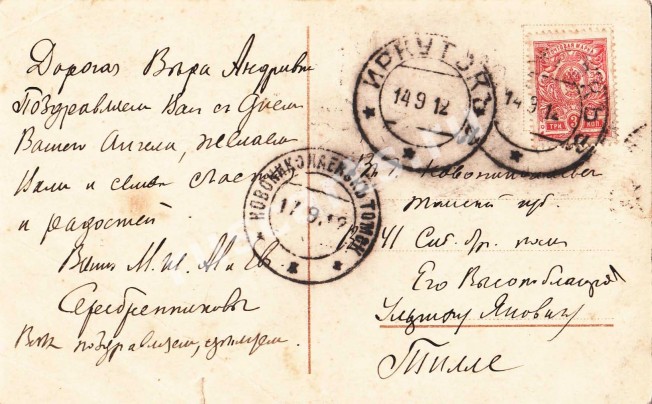 Дорогая Вѣра Андревна
Поздравляем Вас с Днем
Вашего Ангела, желаем
Вам и семье счастья
и радостей
Ваши М. и
Серебренниковы
Всех поздравляем, целуем.
ИРКУТСКЪ
14 9 12
14 9 12
НОВОНИКОЛАЕВСКЪ ТОМСК.
17.9.12
ПОЧТОВАЯ МАРКА
ТРИ 3 КОП
В г. Новониколаевск
Томской губ.
41 Сиб. стр. полк
Его Высокоблагор
Яновичу
Тилле